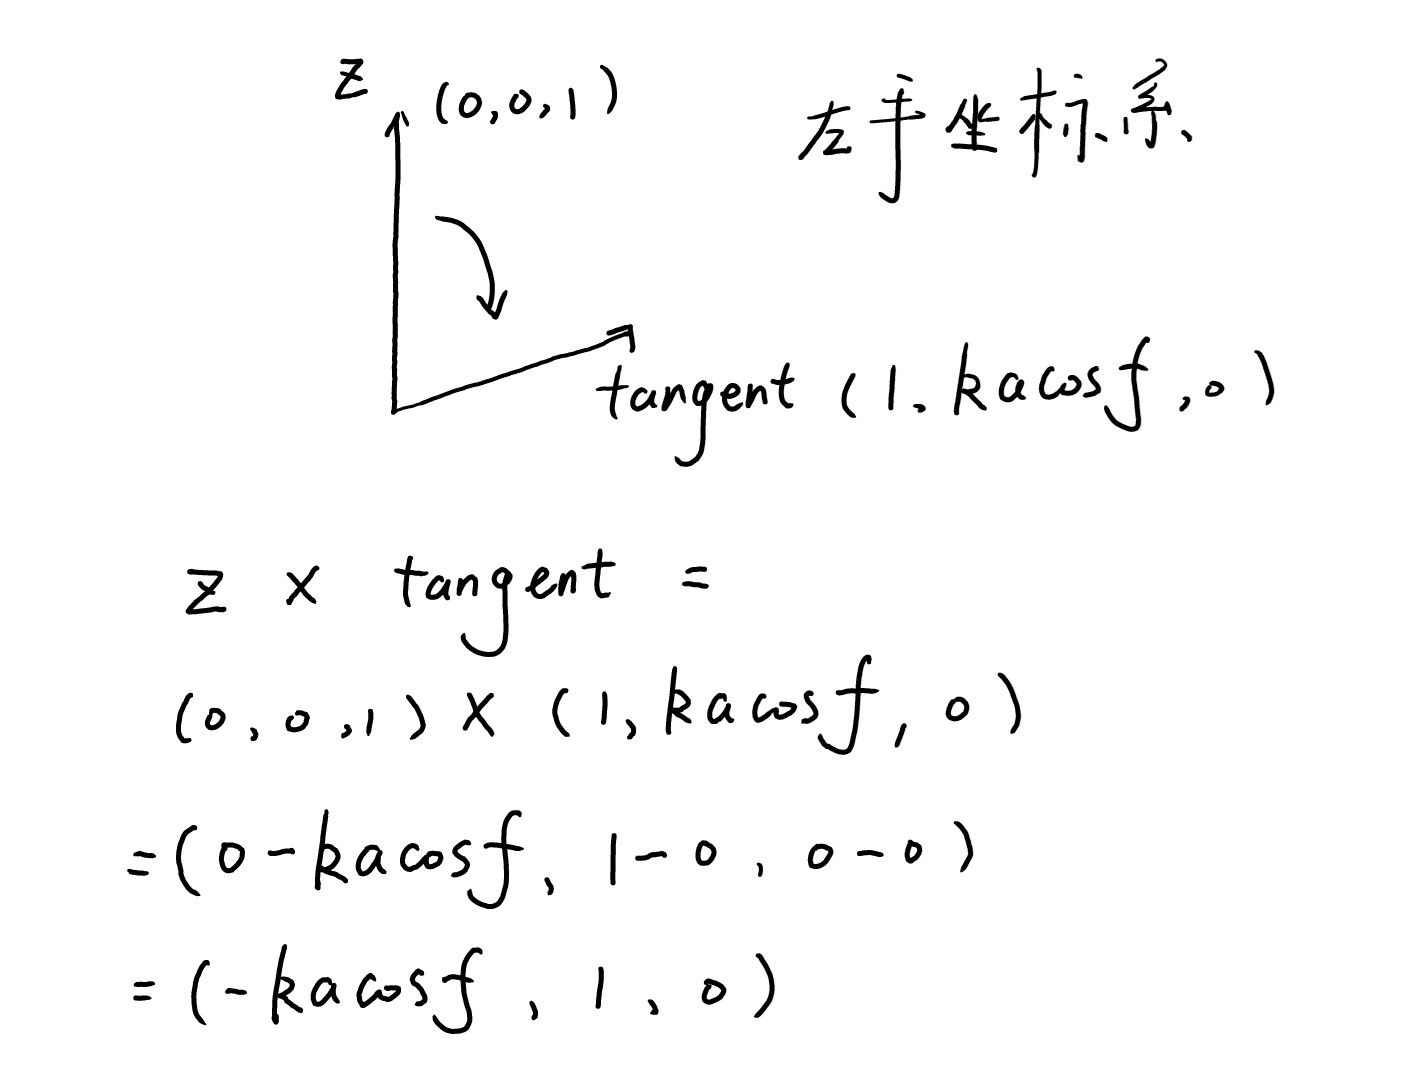 z (0,0,1) 左手坐标系
tangent (1, kacosf, 0)
z × tangent =
(0, 0, 1) × (1, kacosf, 0)
= (0-kacosf, 1-0, 0-0)
= (-kacosf, 1, 0)